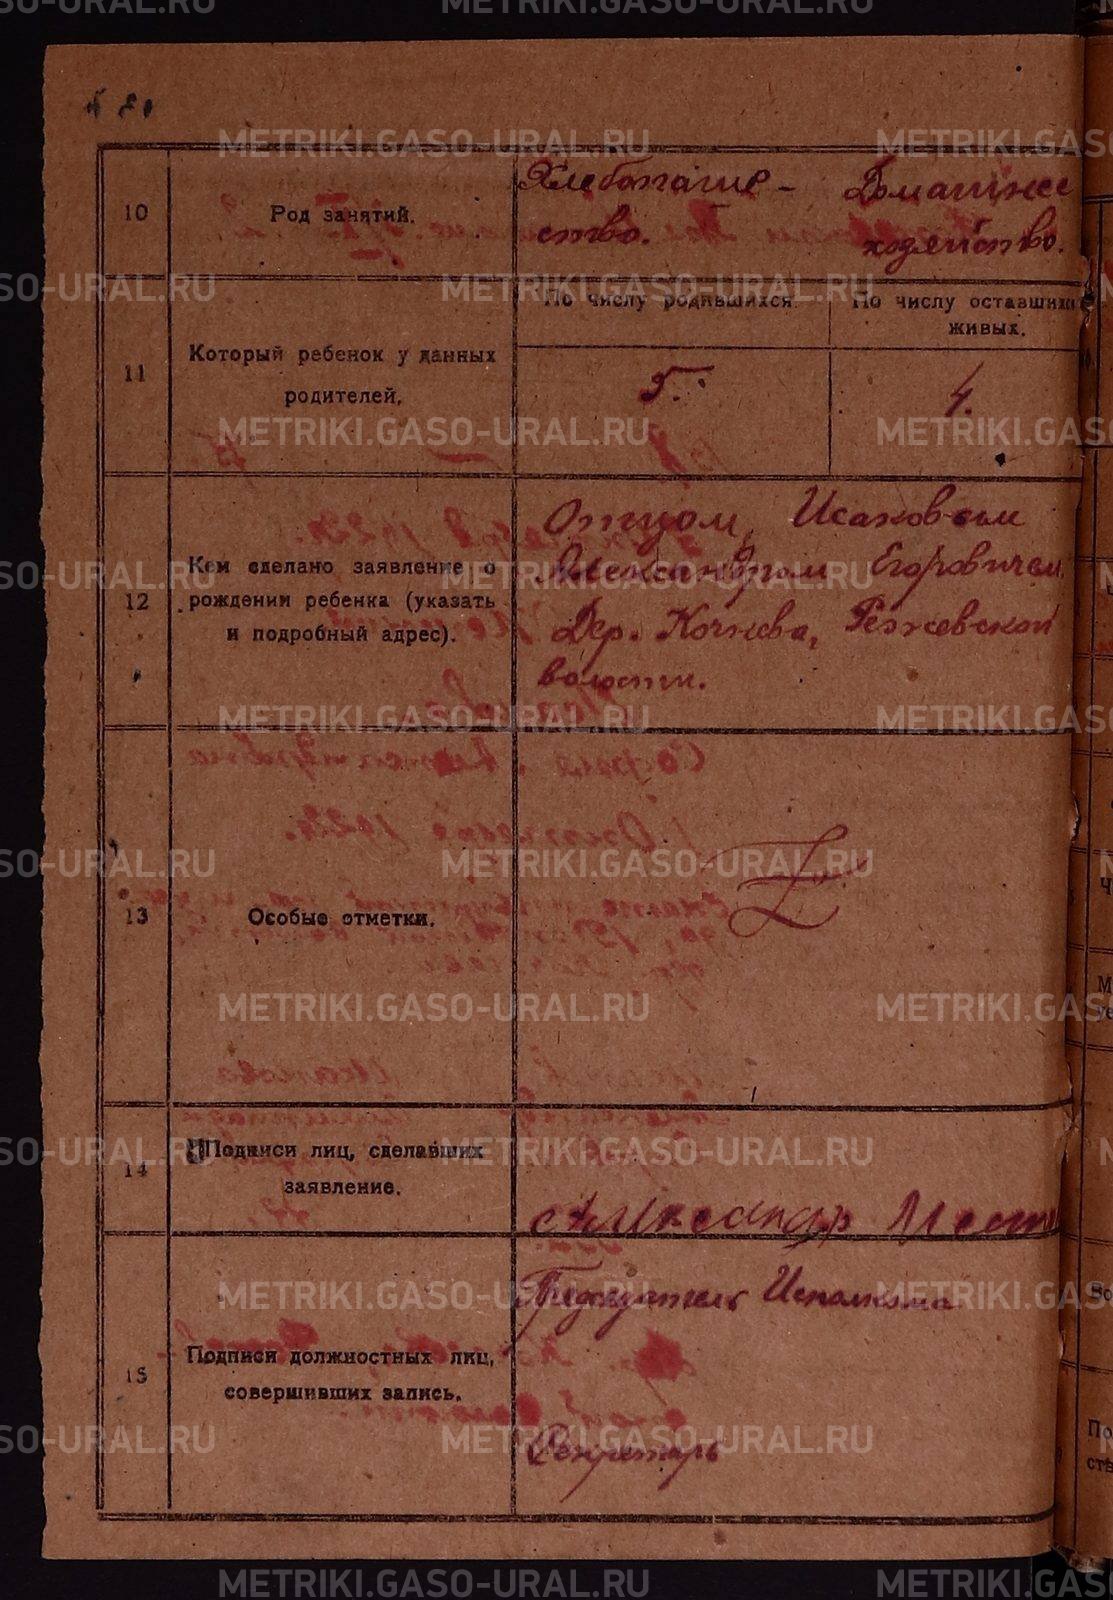 10
Род занятий.
Хлебопаше-
ство.
Домашнее
хозяйство.
11
Который ребенок у данных
родителей.
По числу родившихся.
По числу оставшихся
живых.
5.
4.
12
Кем сделано заявление о
рождении ребенка (указать
и подробный адрес).
Отцом, Исаковым
Александром Егоровичем
Дер. Кочнева, Режевской
волости.
13
Особые отметки.
14
Подписи лиц, сделавших
заявление.
Александр
15
Подписи должностных лиц,
совершивших запись.
Председатель Исполкома
Секретарь
METRIKI.GASO-URAL.RU